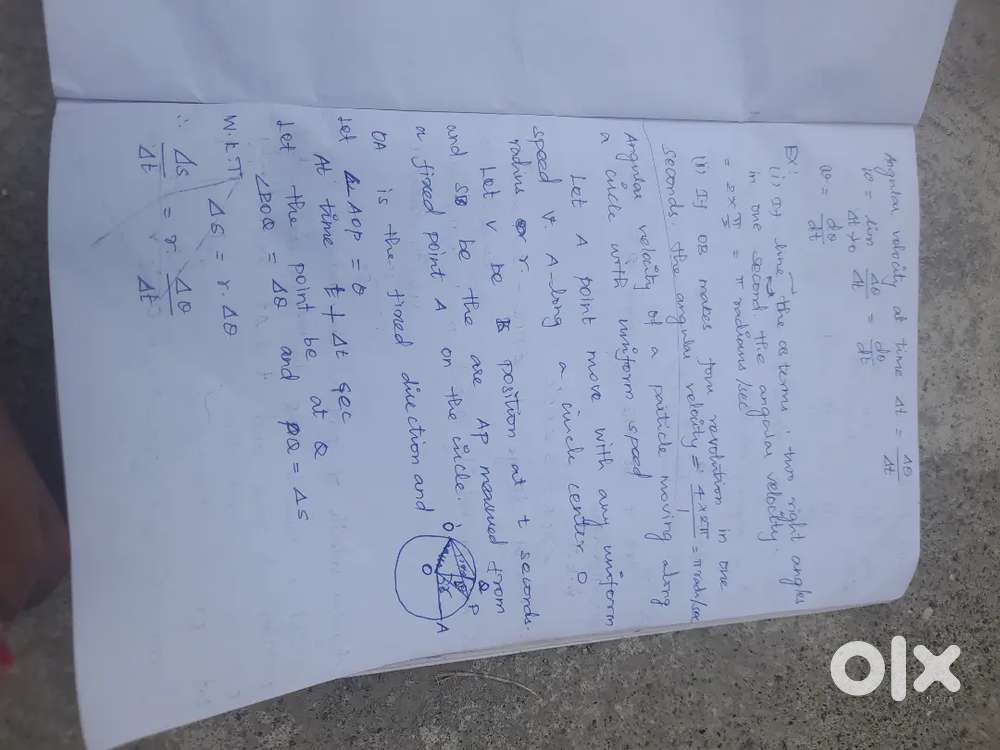 Angular velocity at time Δt = Δθ/Δt
w = lim Δt→0 Δθ/Δt = dθ/dt
w = dθ/dt
EX:
(i) If line the terms, two right angles
in one second the angular velocity.
= 2 × π/2 = π radians/sec
(i) If OB makes four revolution in one
seconds. the angular velocity = 4×2π = π rad/sec
Angular velocity of a particle moving along
a circle with uniform speed
Let A point move with any uniform
speed v. A-long a circle center O
radius r.
Let V be position at t seconds.
and s be the arc AP measured from
a fixed point A on the circle.
OA is the fixed direction and
Let ∠AOP = θ
At time t + Δt sec
Let the point be at Q
∠POQ = Δθ and PQ = Δs
W.k.T Δs = r.Δθ
∴ Δs/Δt = r. Δθ/Δt
O
Q
P
O
A
olx